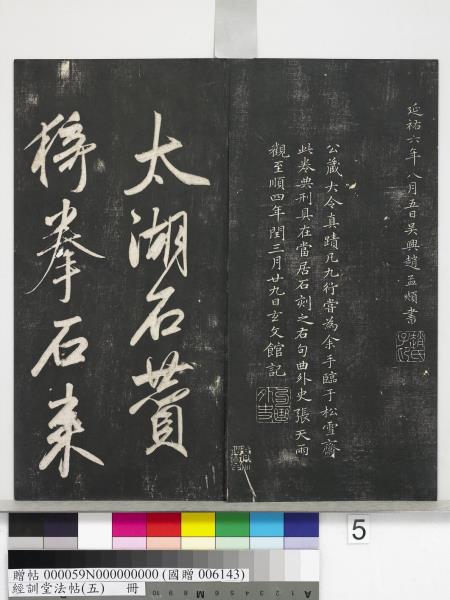 延祐六年八月五日吳興趙孟頫書
公藏大令真蹟凡九行嘗為余手臨于松雪齋
此卷典刑具在當居石刻之右句曲外史張天雨
觀至順四年閏三月廿九日玄文館記
太湖石贊
猗拳石來
5
贈帖 000059N000000000 (國贈 006143)
經訓堂法帖(五) 冊